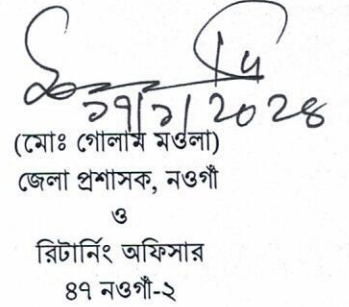 ১৭/১/২০২৪
(মোঃ গোলাম মওলা)
জেলা প্রশাসক, নওগাঁ
ও
রিটার্নিং অফিসার
৪৭ নওগাঁ-২